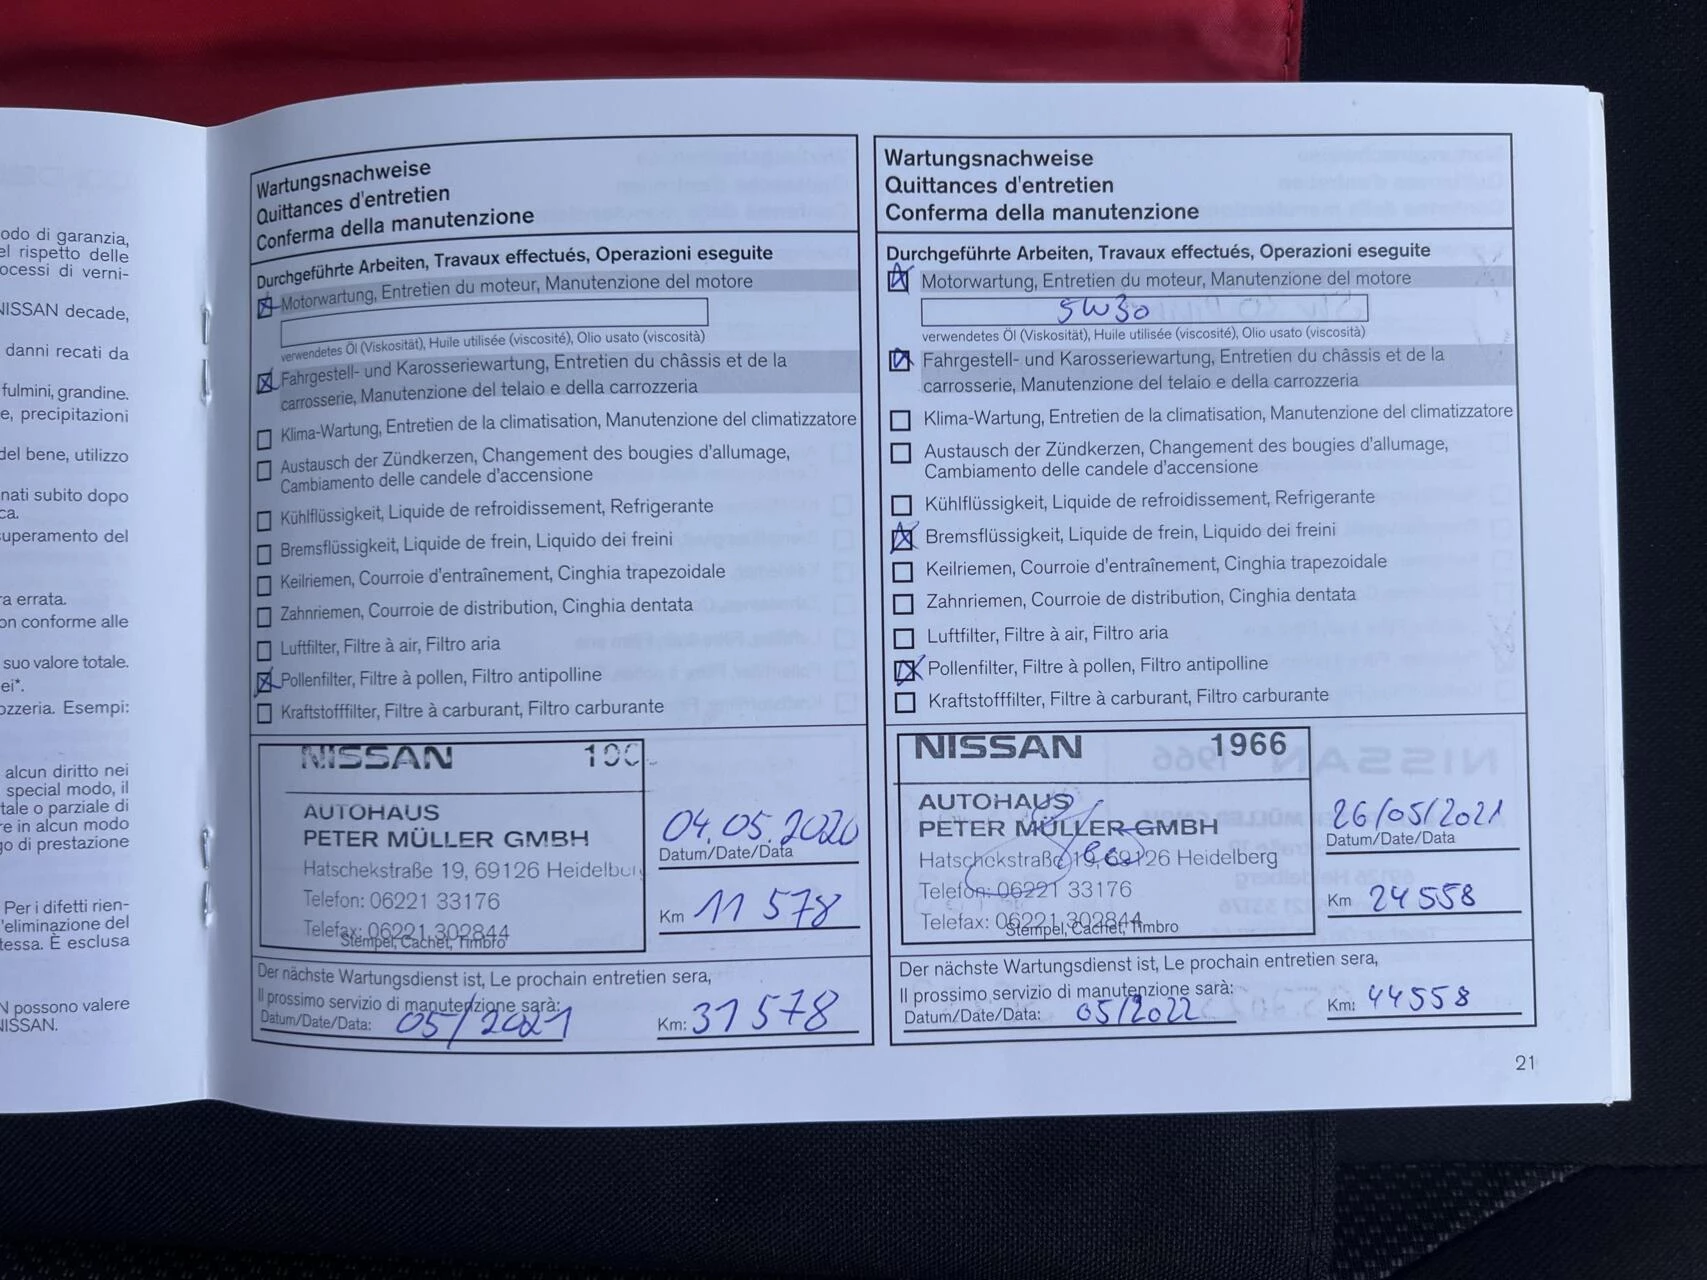 odo di garanzia,
el rispetto delle
ocessi di verni-
NISSAN decade,
danni recati da
fulmini, grandine.
e, precipitazioni
del bene, utilizzo
nati subito dopo
ca.
superamento del
ra errata.
on conforme alle
suo valore totale.
ei*.
ozzeria. Esempi:
alcun diritto nei
special modo, il
tale o parziale di
re in alcun modo
go di prestazione
Per i difetti rien-
l'eliminazione del
tessa. È esclusa
N possono valere
NISSAN.
Wartungsnachweise
Quittances d'entretien
Conferma della manutenzione
Durchgeführte Arbeiten, Travaux effectués, Operazioni eseguite
Motorwartung, Entretien du moteur, Manutenzione del motore
verwendetes Öl (Viskosität), Huile utilisée (viscosité), Olio usato (viscosità)
Fahrgestell- und Karosseriewartung, Entretien du châssis et de la
carrosserie, Manutenzione del telaio e della carrozzeria
Klima-Wartung, Entretien de la climatisation, Manutenzione del climatizzatore
Austausch der Zündkerzen, Changement des bougies d'allumage,
Cambiamento delle candele d'accensione
Kühlflüssigkeit, Liquide de refroidissement, Refrigerante
Bremsflüssigkeit, Liquide de frein, Liquido dei freini
Keilriemen, Courroie d'entraînement, Cinghia trapezoidale
Zahnriemen, Courroie de distribution, Cinghia dentata
Luftfilter, Filtre à air, Filtro aria
Pollenfilter, Filtre à pollen, Filtro antipolline
Kraftstofffilter, Filtre à carburant, Filtro carburante
NISSAN
AUTOHAUS
PETER MÜLLER GMBH
Hatschekstraße 19, 69126
Telefon: 06221 33176
Telefax: 06221 302844
Stempel, Cachet, Timbro
04.05.2020
Datum/Date/Data
Km 11 578
Der nächste Wartungsdienst ist, Le prochain entretien sera,
Il prossimo servizio di manutenzione sarà:
Datum/Date/Data: 05/2021 Km: 31 578
Wartungsnachweise
Quittances d'entretien
Conferma della manutenzione
Durchgeführte Arbeiten, Travaux effectués, Operazioni eseguite
Motorwartung, Entretien du moteur, Manutenzione del motore
5W30
verwendetes Öl (Viskosität), Huile utilisée (viscosité), Olio usato (viscosità)
Fahrgestell- und Karosseriewartung, Entretien du châssis et de la
carrosserie, Manutenzione del telaio e della carrozzeria
Klima-Wartung, Entretien de la climatisation, Manutenzione del climatizzatore
Austausch der Zündkerzen, Changement des bougies d'allumage,
Cambiamento delle candele d'accensione
Kühlflüssigkeit, Liquide de refroidissement, Refrigerante
Bremsflüssigkeit, Liquide de frein, Liquido dei freini
Keilriemen, Courroie d'entraînement, Cinghia trapezoidale
Zahnriemen, Courroie de distribution, Cinghia dentata
Luftfilter, Filtre à air, Filtro aria
Pollenfilter, Filtre à pollen, Filtro antipolline
Kraftstofffilter, Filtre à carburant, Filtro carburante
NISSAN 1966
AUTOHAUS
PETER MÜLLER GMBH
Hatschekstraße 19, 69126 Heidelberg
Telefon: 06221 33176
Telefax: 06221 302844
Stempel, Cachet, Timbro
26/05/2021
Datum/Date/Data
Km 24558
Der nächste Wartungsdienst ist, Le prochain entretien sera,
Il prossimo servizio di manutenzione sarà:
Datum/Date/Data: 05/2022 Km: 44558
21